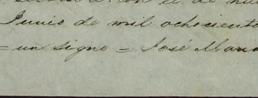 con el de
Junio de mil ochociento
= un signo = José Man